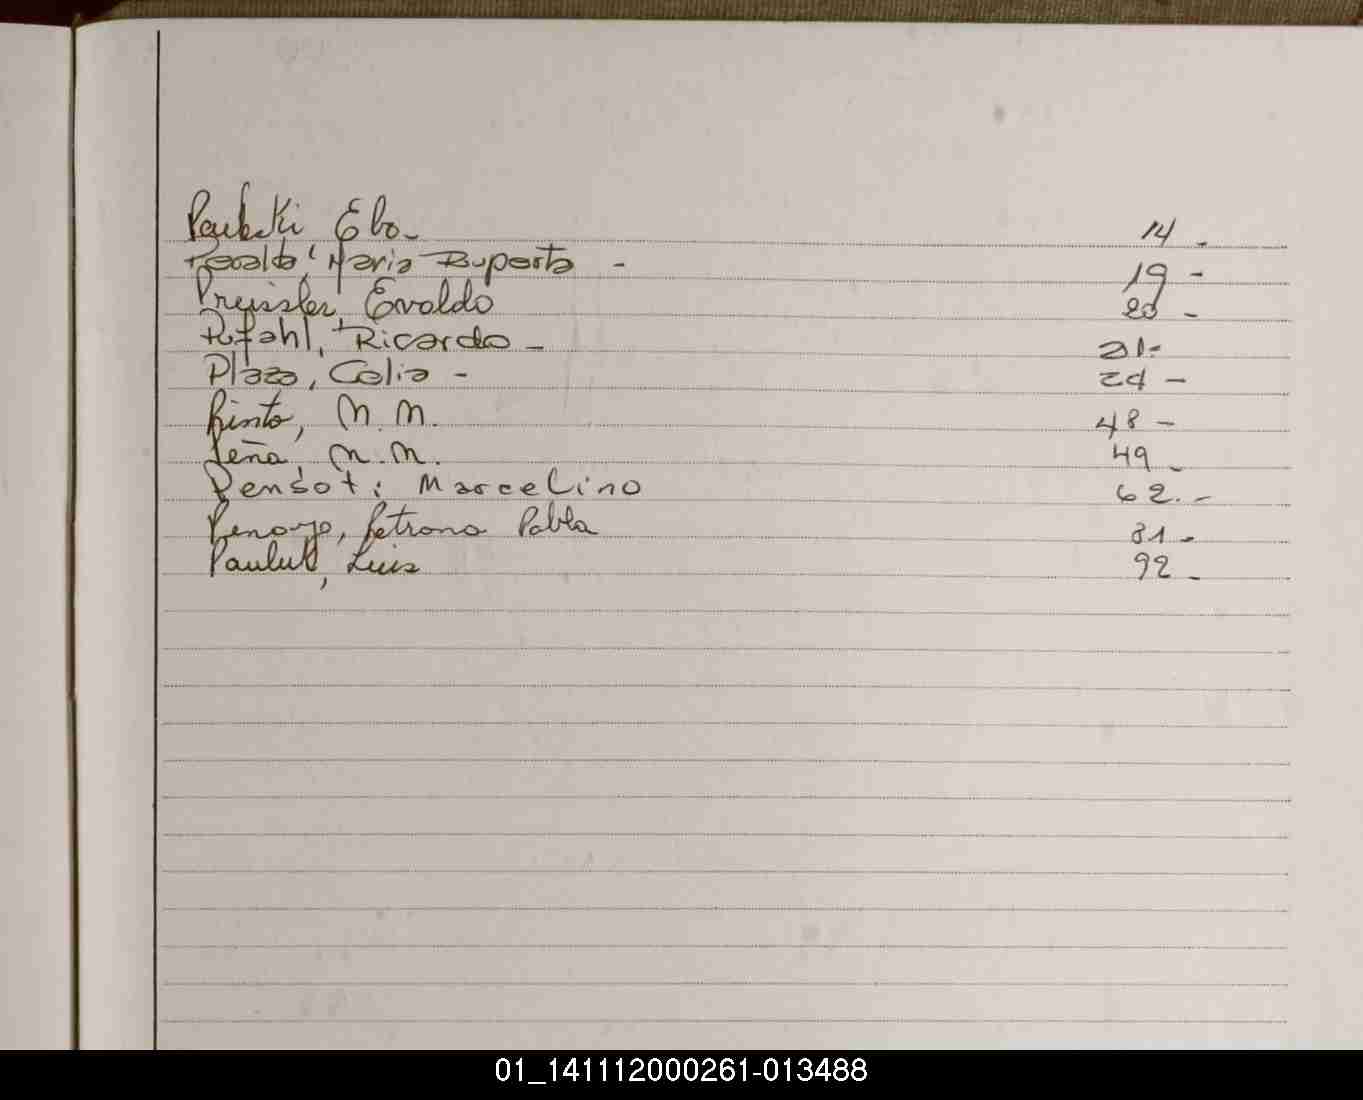 Paulski Elo - 14 -
Peralta, Maria Ruperta - 19 -
Preissler, Evaldo 20 -
Pufahl, Ricardo - 21 -
Plazo, Celia - 24 -
Pinto, N. N. 48 -
Peña, N. N. 49 -
Pensot: Marcelino 62. -
Penayo, Petrona Pabla 81 -
Pauluk, Luis 92 -
01_141112000261-013488